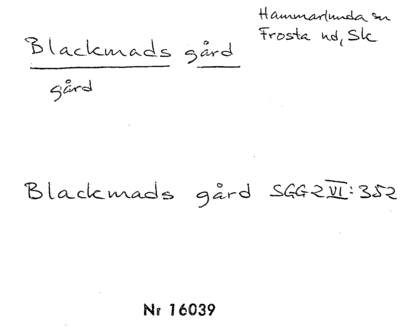 Hammarlunda sn
Frosta hd, Sk
Blackmads gård
gård
Blackmads gård SGG2 VI:352
Nr 16039